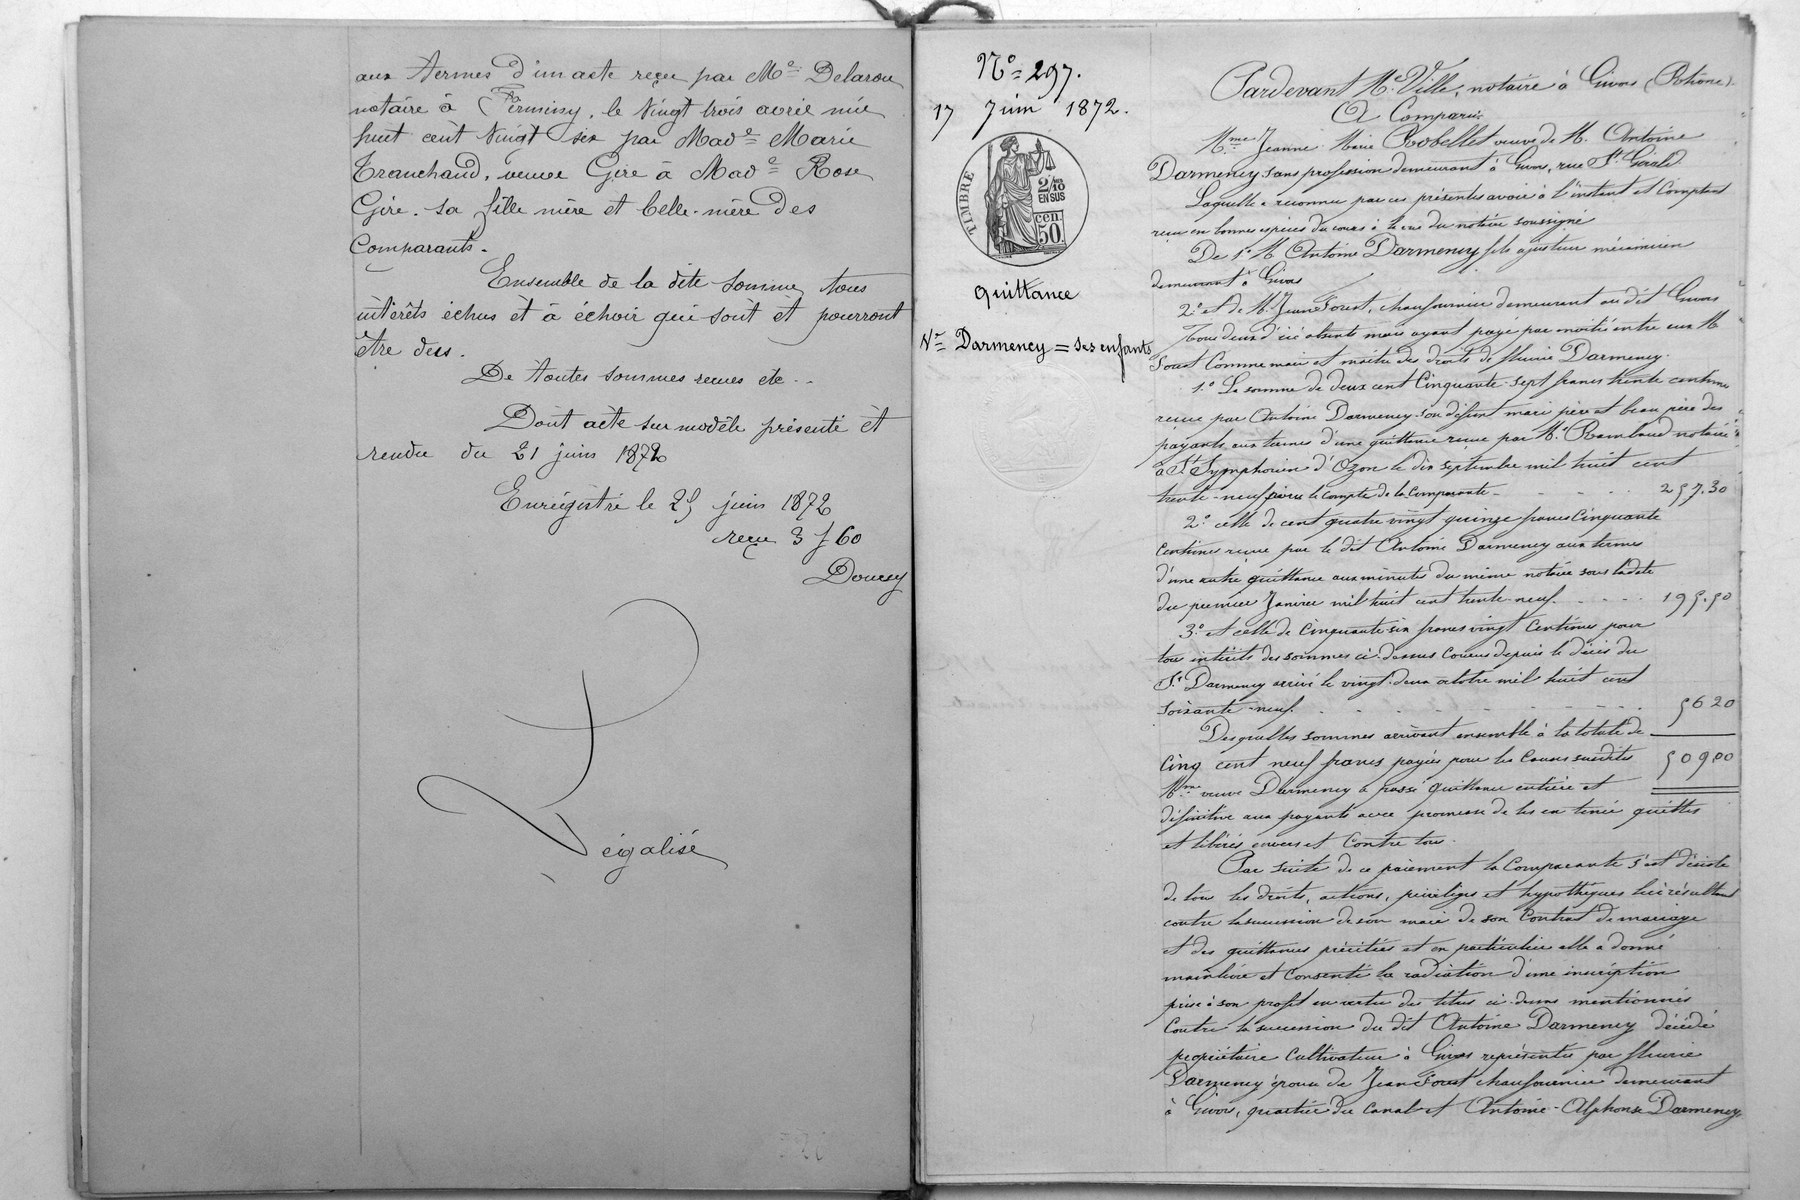 aux termes d'un acte reçu par Me Delarou
notaire à Firminy, le vingt trois avril mil
huit cent vingt six par Made Marie
Tranchand, veuve Gire à Made Rose
Gire. sa fille mère et belle-mère des
Comparants.
Ensemble de la dite somme, tous
intérêts échus et à échoir qui sont et pourront
être dus.
De toutes sommes reçues etc..
Dont acte sur modèle présenté et
rendu du 21 juin 1872
Enregistré le 25 juin 1872
reçu 3 f 60
Doucey
Légalisé
No 297.
17 Juin 1872.
TIMBRE
2/10
EN SUS
cen.
50
Quittance
Ve Darmency = ses enfants
Pardevant Me Ville, notaire à Givors (Rhône).
A Comparu:
Mme Jeanne Marie Robellet veuve de M. Antoine
Darmency sans profession demeurant à Givors, rue St Gérald
Laquelle a reconnu par ces présentes avoir à l'instant et comptant
reçu en bonnes espèces du cours à la vue du notaire soussigné
De 1o M. Antoine Darmency fils ajusteur mécanicien
demeurant à Givors
2o et de M. Jean Forest, chaufournier demeurant au dit Givors
Tous deux d'ici absents mais ayant payé par moitié entre eux M.
Forest comme mari et maître des droits de fleurie Darmency.
1o La somme de deux cent cinquante-sept francs trente centimes
reçue par Antoine Darmency son défunt mari père et beau père des
payants aux termes d'une quittance reçue par Me Rambaud notaire
à St Symphorien d'Ozon le dix septembre mil huit cent
trente-neuf pour le compte de la Comparante - - - - 257.30
2o celle de cent quatre vingt quinze francs Cinquante
Centimes reçue par le dit Antoine Darmency aux termes
d'une autre quittance aux minutes du même notaire sous la date
du premier Janvier mil huit cent trente-neuf. - - - - 195.50
3o et celle de Cinquante-six francs vingt Centimes pour
tous intérêts des sommes ci-dessus courus depuis le décès du
Sr Darmency arrivé le vingt-deux octobre mil huit cent
soixante-neuf. - - - - - - - - 56 20
Desquelles sommes arrivant ensemble à la totale de
Cinq cent neuf francs payées pour les Causes susdites 509.00
Mme veuve Darmency a passé quittance entière et
définitive aux payants avec promesse de les en tenir quittes
et libérés envers et contre tous.
Par suite de ce paiement la Comparante s'est désistée
de tous les droits, actions, privilèges et hypothèques lui résultant
contre la succession de son mari de son Contrat de mariage
et des quittances précitées et en particulier elle a donné
mainlevée et consenti la radiation d'une inscription
prise à son profit en vertu des titres ci-dessus mentionnés
Contre la succession du dit Antoine Darmency décédé
propriétaire Cultivateur à Givors représentée par fleurie
Darmency épouse de Jean Forest chaufournier demeurant
à Givors, quartier du Canal et Antoine-Alphonse Darmency